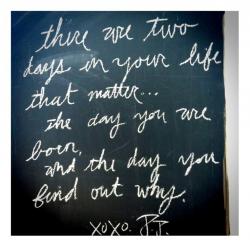 there are two
days in your life
that matter...
the day you are
born,
and the day you
find out why.
xoxo. P.T.